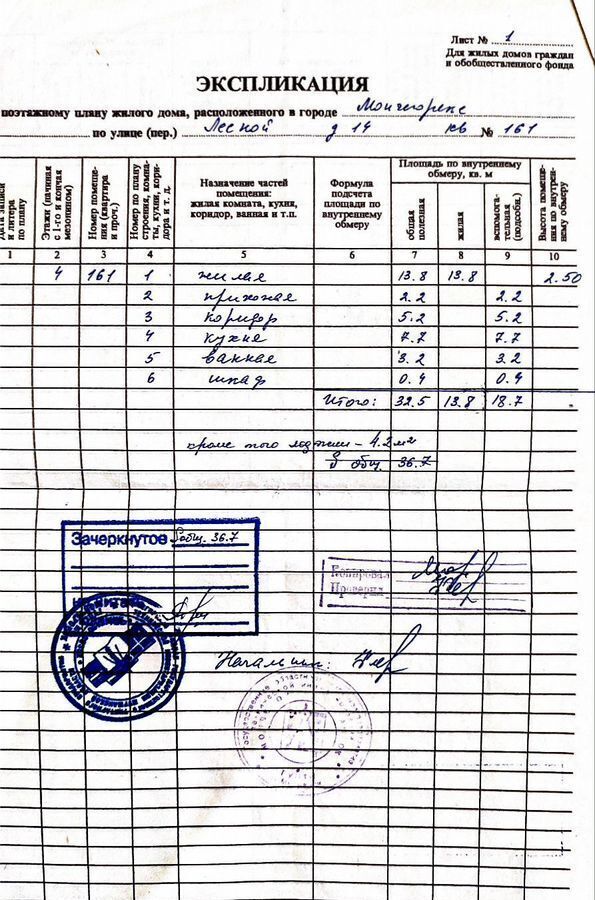 Лист № 1
Для жилых домов граждан
и обобществленного фонда
ЭКСПЛИКАЦИЯ
поэтажному плану жилого дома, расположенного в городе Мончегорске
по улице (пер.) Лесной д 14 кв № 161
записи и литера по плану
Этажи (начиная с 1-го и кончая мезонином)
Номер помещения (квартира и проч.)
Номер по плану строения, комнаты, кухни, коридора и т. д.
Назначение частей помещения: жилая комната, кухня, коридор, ванная и т.п.
Формула подсчета площади по внутреннему обмеру
Площадь по внутреннему обмеру, кв. м
общая полезная
жилая
вспомогательная (подсобн.)
Высота помещения по внутреннему обмеру
1 2 3 4 5 6 7 8 9 10
4 161 1 жилая 13.8 13.8 2.50
2 прихожая 2.2 2.2
3 коридор 5.2 5.2
4 кухня 7.7 7.7
5 ванная 3.2 3.2
6 шкаф 0.4 0.4
Итого: 32.5 13.8 18.7
кроме того лоджии - 4.2 м2
S общ. 36.7
Зачеркнутое Sобщ. 36.7
Копировал
Проверил
Начальник: